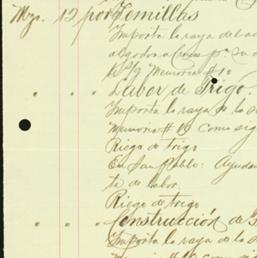 Myo. 12 por Semillas
Importa la raya del
algodon como pr. su
Memoria # 10
" " Labor de Trigo.
Importa la raya de la
Memoria # 10 Como sig
Riego de trigo
En San Pablo: Ayudan
te de labor
Riego de trigo
" " Construcción de
Importa la raya de la